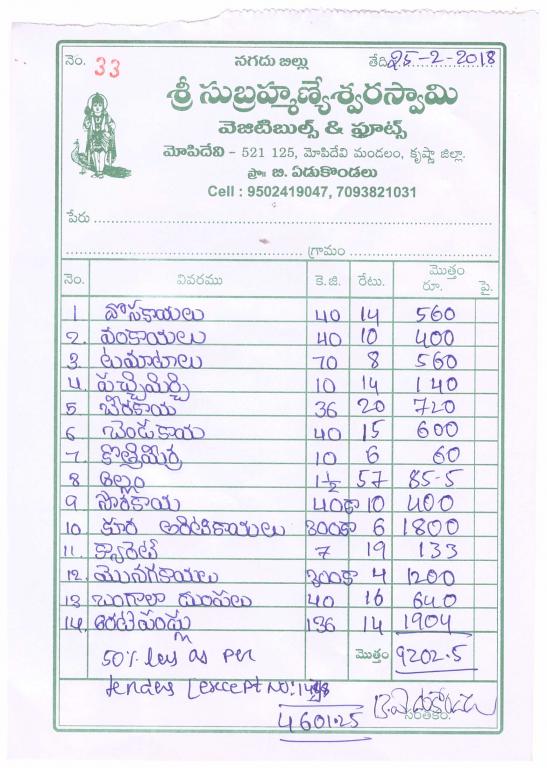 నెం. 33 నగదు బిల్లు తేది 25-2-2018
శ్రీ సుబ్రహ్మణ్యేశ్వరస్వామి
వెజిటిబుల్స్ & ఫ్రూట్స్
మోపిదేవి - 521 125, మోపిదేవి మండలం, కృష్ణా జిల్లా.
ప్రొ: బి. ఏడుకొండలు
Cell : 9502419047, 7093821031
పేరు
గ్రామం
నెం. వివరము కె.జి. రేటు. మొత్తం రూ. పై.
1. దోసకాయలు 40 14 560
2. వంకాయలు 40 10 400
3. టమాటాలు 70 8 560
4. పచ్చిమిర్చి 10 14 140
5 బీరకాయ 36 20 720
6 బెండకాయ 40 15 600
7. కొత్తిమీర 10 6 60
8 అల్లం 1½ 57 85-5
9 సొరకాయ 40 కా 10 400
10 కూర అరటికాయలు 300 కా 6 1800
11. క్యారెట్ 7 19 133
12. మునగకాయలు 300 కా 4 1200
13 బంగాలా దుంపలు 40 16 640
14. అరటిపండ్లు 136 14 1904
50% less as per మొత్తం 9202.5
tenders [except No:
4601.25 సంతకం.